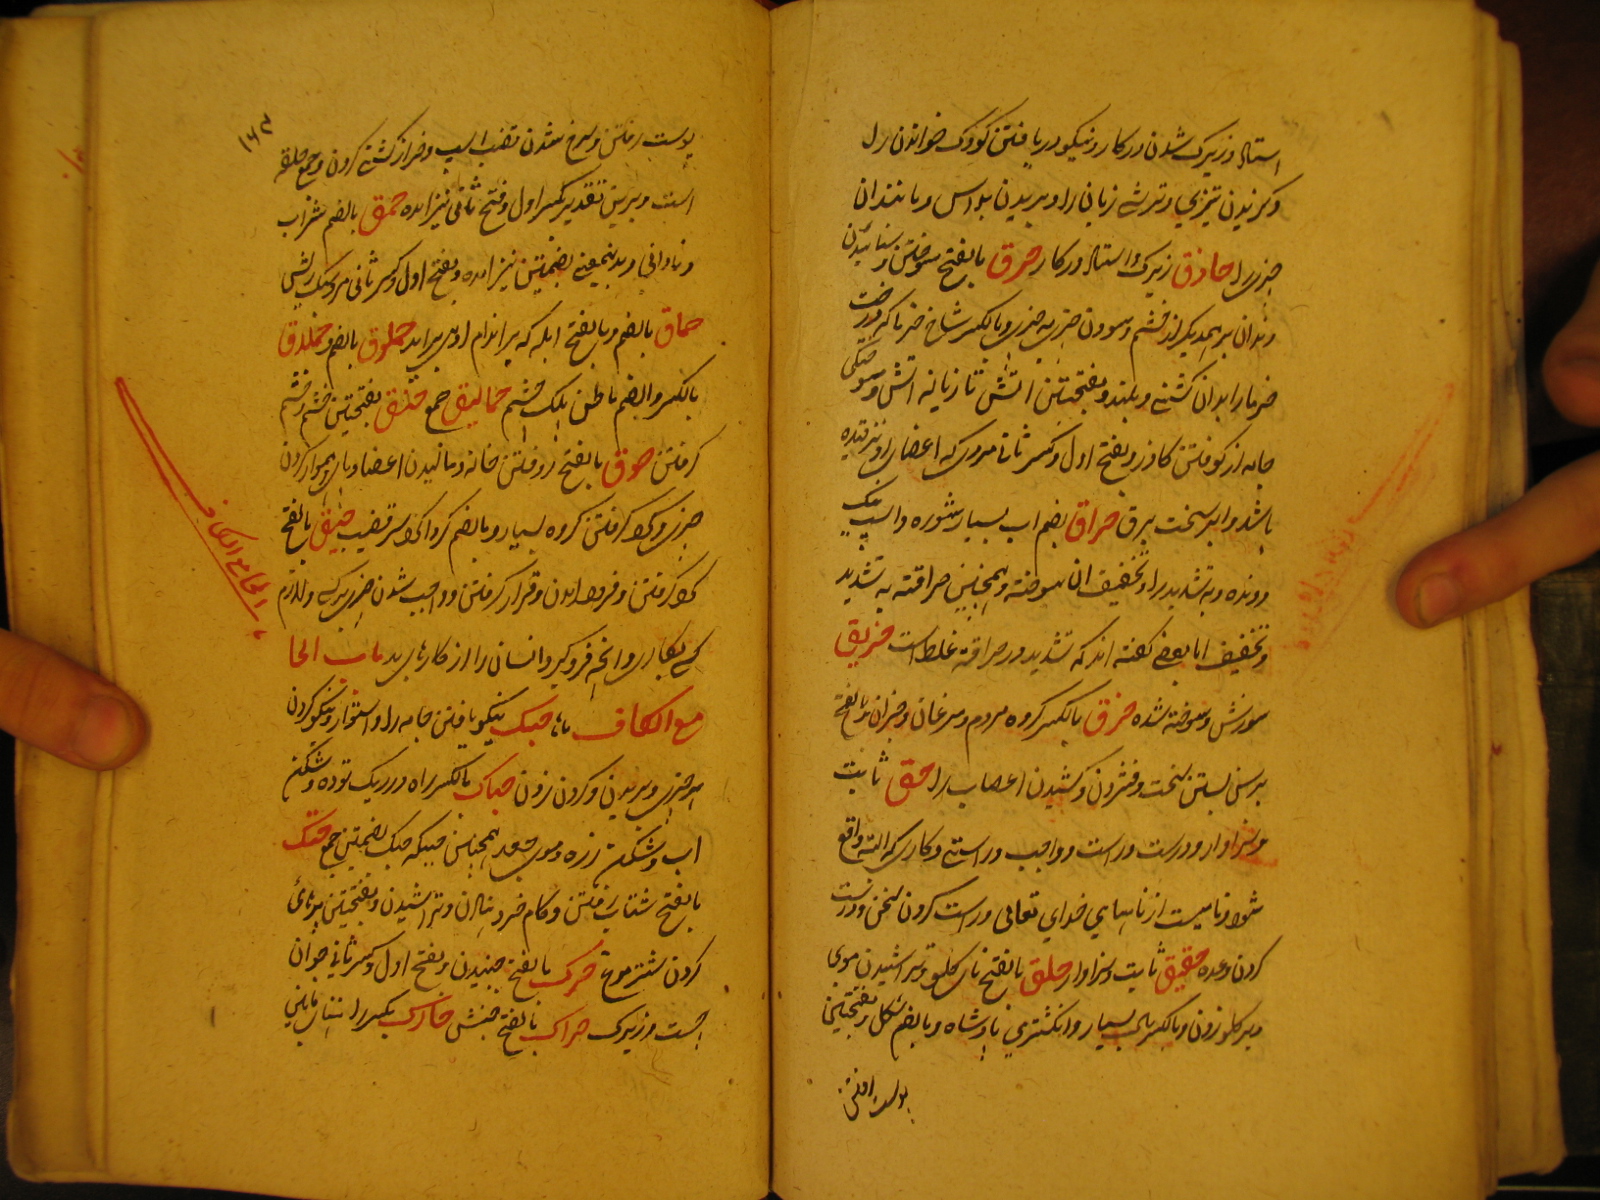 استاد و زیرک شدن در کار و نیکو دریافتن کودک خواندن را
و گزیدن تیزی و ترشی زبان را و بریدن بداس و مانند آن
چیزی را حاذق زیرک و استاد در کار حرق بالفتح سوختن و سائیدن
دندان بر همدیگر از خشم و سودن چیزی بچیزی و بالکسر شاخ خرما که درخت
خرما را بدان کشن دهند و بفتحتین آتش تا زبانه آتش و سوختگی
جامه از کوفتن کازر و بفتح اول و کسر ثانی مردی که اعضای او
باشد و ابر سخت برق حراق بضم آب بسیار شوره و اسب
دونده و به تشدید را و تخفیف آن سوخته و همچنین حراقه به تشدید
و تخفیف اما بعضی گفته اند که تشدید در حراقه غلط است حریق
سوزش و سوخته شده حزق بالکسر گروه مردم و مرغان و جز آن و بالفتح
برسن بستن سخت و فشردن و کشیدن اعصاب را حق ثابت
و سزاوار و درست و راست و واجب و راستی و کاری که البته واقع
شود و نامیست از نامهای خدای تعالی و راست کردن سخن و درست
کردن وعده حقیق ثابت و سزاوار حلق بالفتح نای گلو و تراشیدن موی
و بر گلو زدن و بالکسر مال بسیار و انگشتری پادشاه و بالضم ثکل و بفتحتین
پوست رفتن
۱۶۳
پوست رفتن و سرخ شدن قضیب اسب و خر از کشنی کردن و جمع حلقه
است و برین تقدیر بکسر اول و فتح ثانی نیز آمده حمق بالضم شراب
و نادانی و بدینمعنی بضمتین نیز آمده و بفتح اول و کسر ثانی مرد سبک ریش
حماق بالضم و بالفتح آبله که بر اندام آدمی برآید حملوق بالضم و حملاق
بالکسر و الضم باطن پلک چشم حمالیق جمع حنق بفتحتین خشم و خشم
گرفتن حوق بالفتح روفتن خانه و مالیدن اعضا و پاک و هموار کردن
چیزی و گرد گرفتن گروه بسیار و بالضم گرداگرد سر قضیب حیق بالفتح
گرد گرفتن و فرود آمدن و قرار گرفتن و واجب شدن چیزی بر کسی و لازم
کسی بکار را و آنچه فرو گیرد انسان را از کارهای بد باب الحا
مع الکاف حبک نیکو بافتن جامه را و استوار و نیکو کردن
هر چیزی و بریدن و گردن زدن حباک بالکسر راه در ریک توده و شکن
آب و شکن زره و موی جعد همچنین حبیکه حبک بضمتین جمع حتک
بالفتح شتاب رفتن و کام خرد نهادن و تراشیدن و بفتحتین بچهای
کردن شترمرغ حرک بالفتح جنبیدن و بفتح اول و کسر ثانی جوان
چست و زیرک حراک بالفتح جنبش حارک بکسر را میان
باب الحا مع الکاف